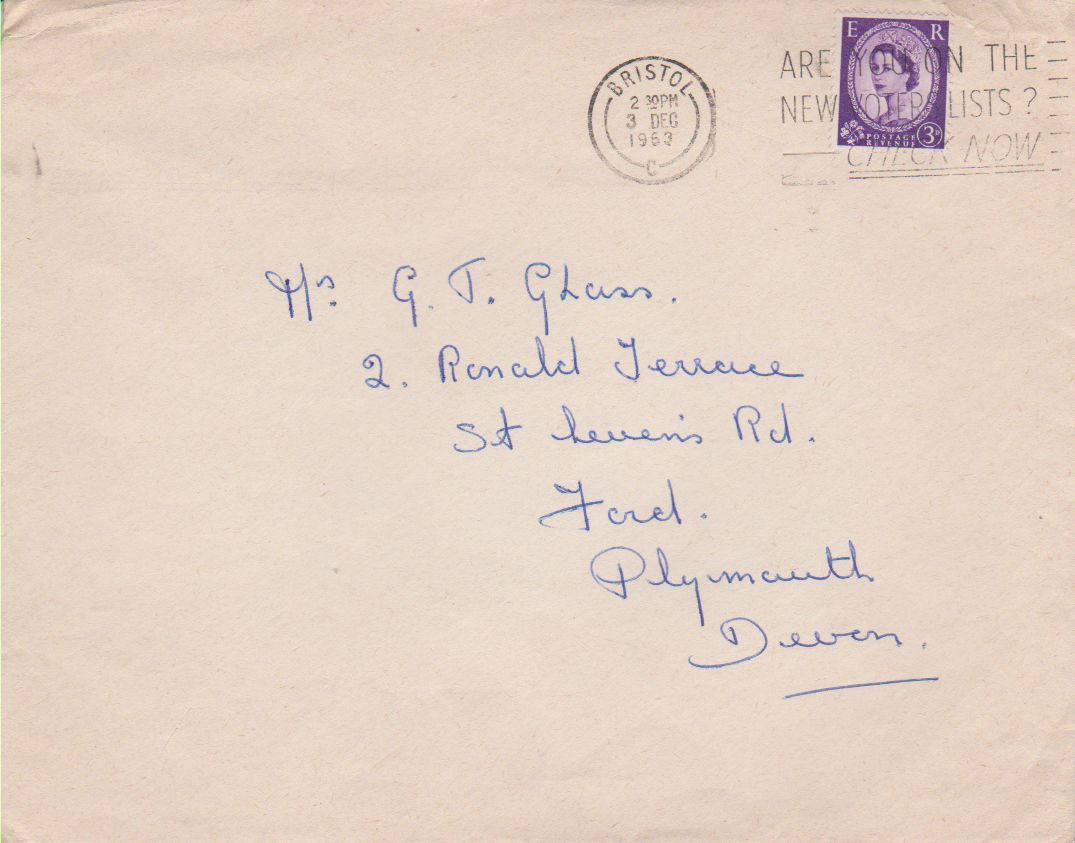 BRISTOL
2 30PM
3 DEC
1963
C
E R
POSTAGE
REVENUE
3D
ARE YOU ON THE
NEW VOTERS LISTS ?
CHECK NOW
Mrs. G. T. Glass.
2. Ronald Terrace
St Leven's Rd.
Ford.
Plymouth
Devon.